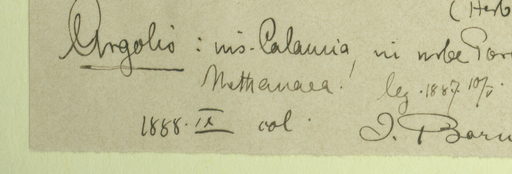 (Herb
Argolis : ins. Calauria, in urbe Poro
Methanaea! leg. 1887 10/5.
1888. IX col. J. Bornm